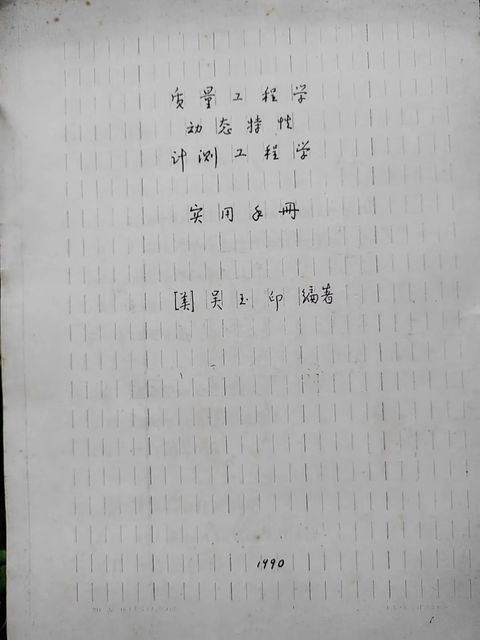 质量工程学
动态特性
计测工程学
实用手册
[美]吴玉印 编著
1990